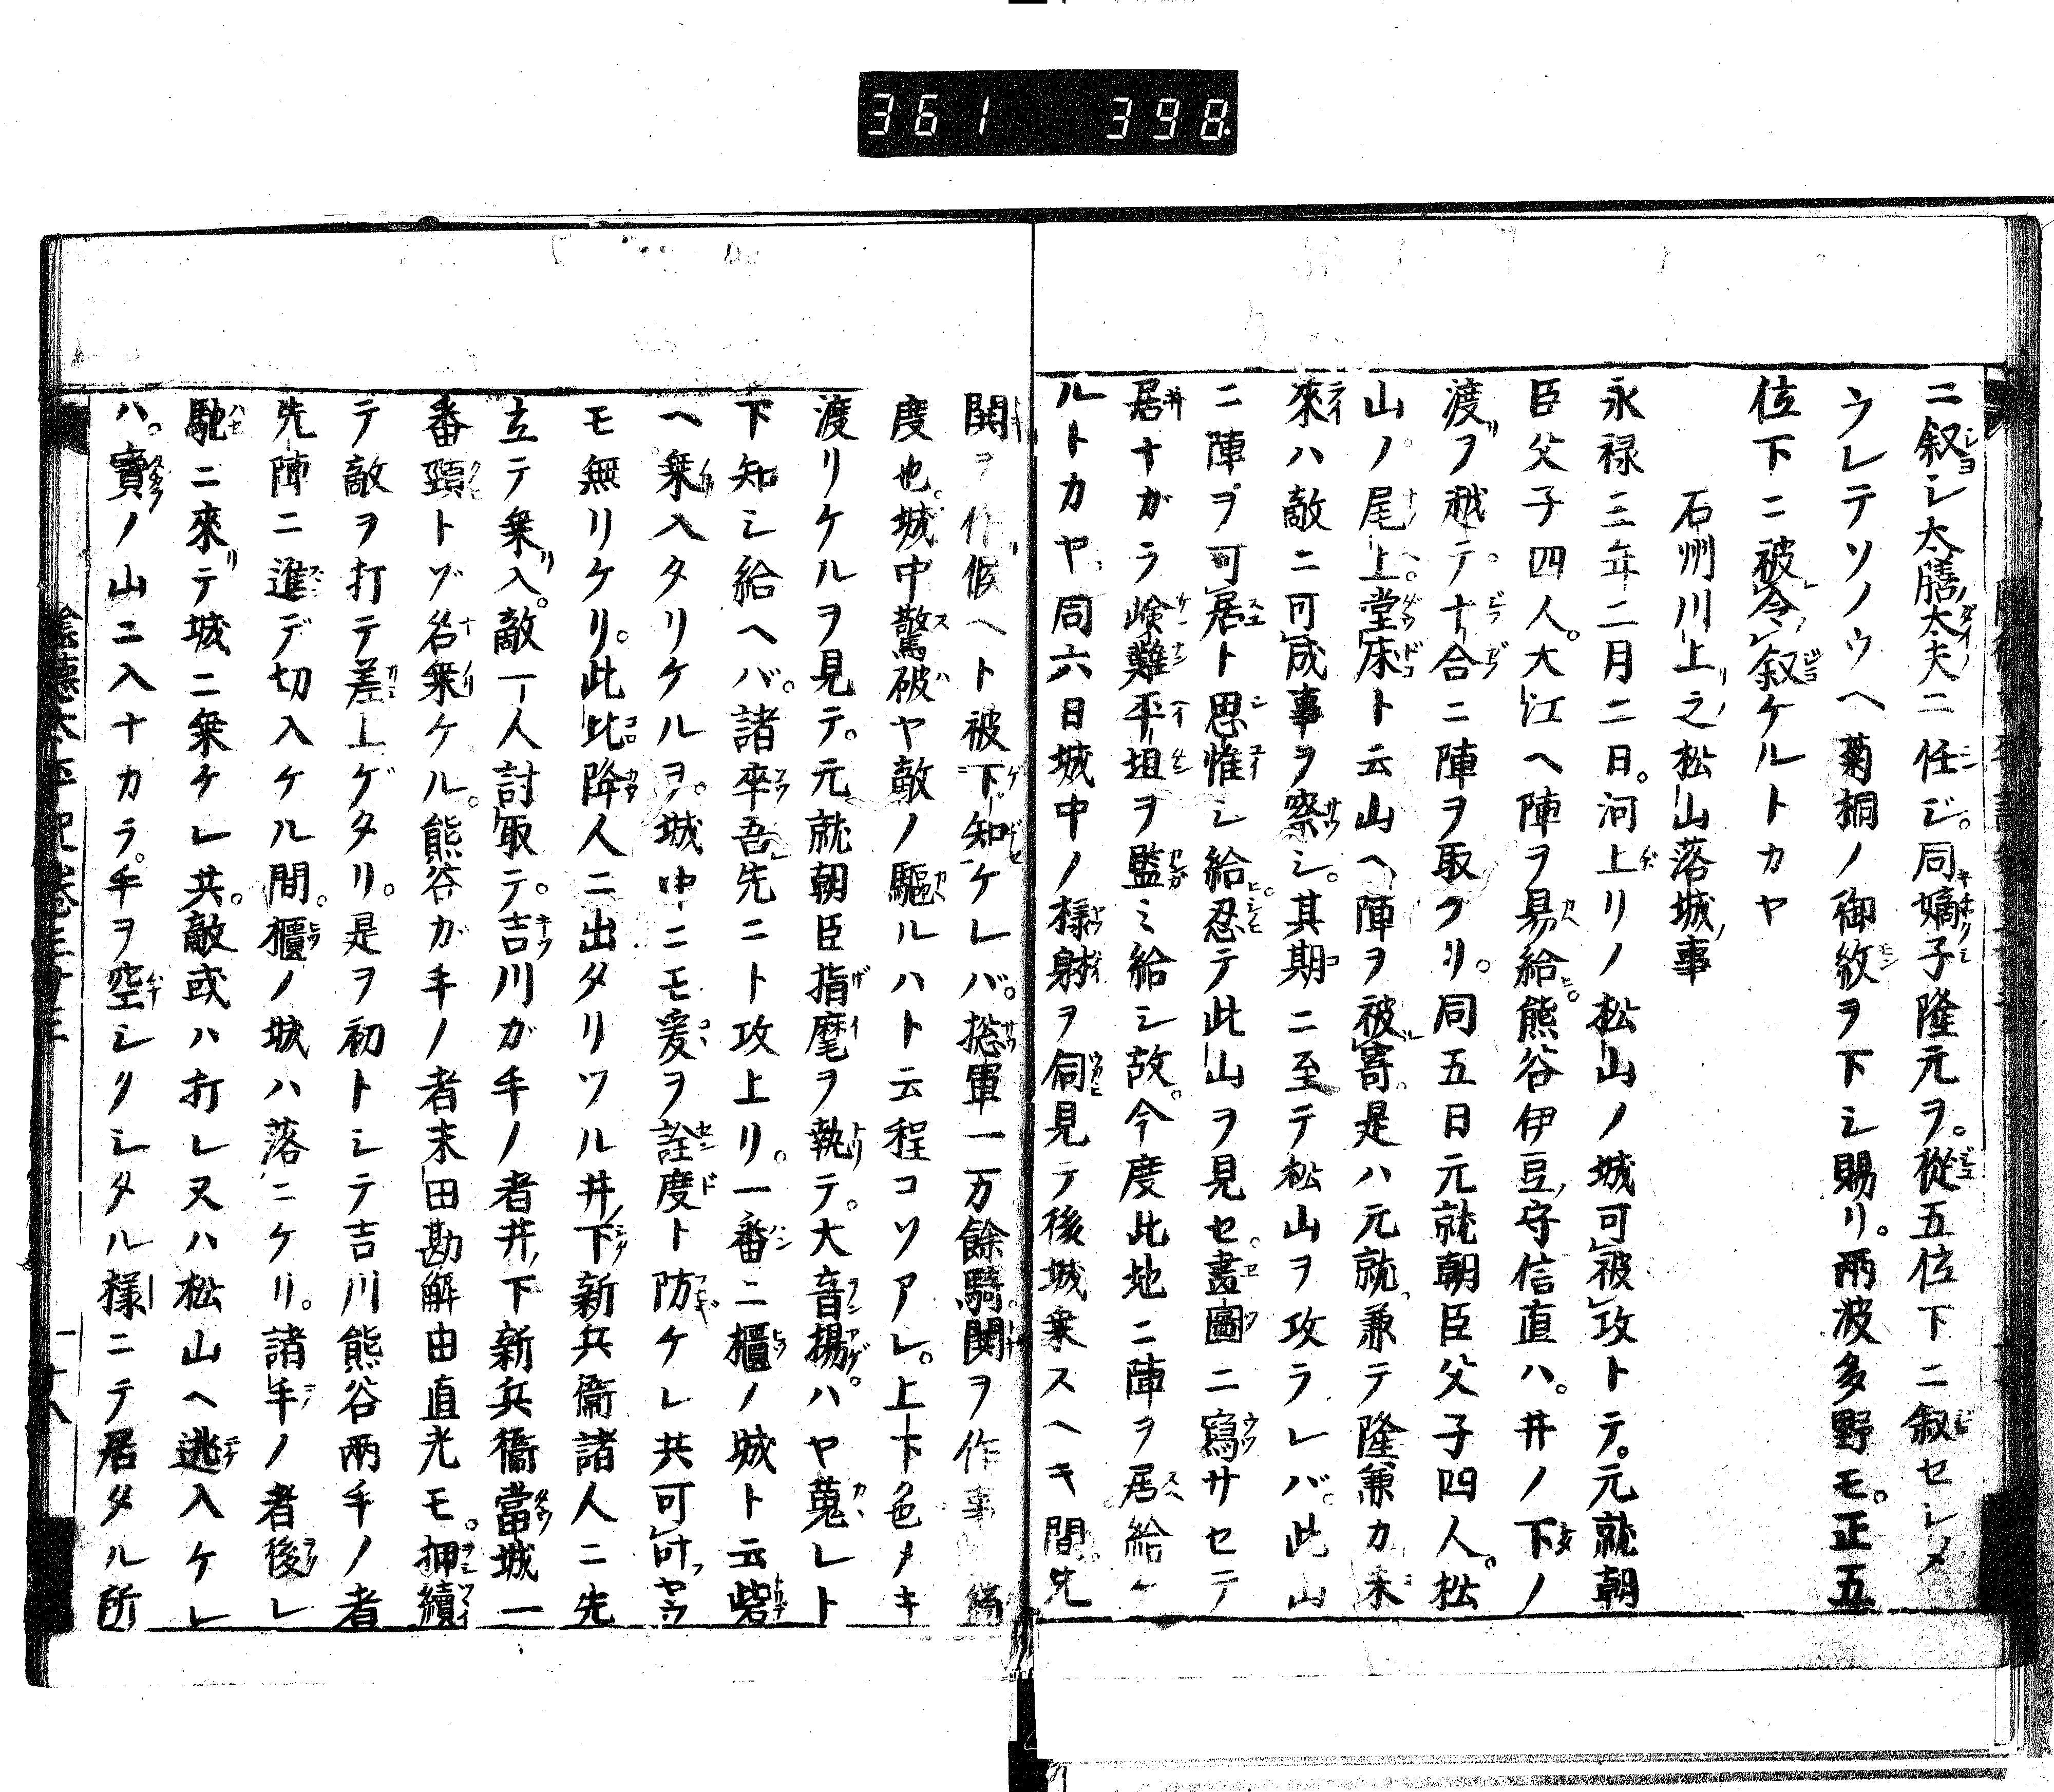 361 398
ニ叙シ太膳太夫ニ任ジ。同嫡子隆元ヲ。従五位下ニ叙セレメ
ウレテソノウヘ菊桐ノ御紋ヲ下シ賜リ。兩波多野モ。正五
位下ニ被令叙ケルトカヤ
石州川上之松山落城事
永禄三年二月二日。河上リノ松山ノ城可被攻トテ。元就朝
臣父子四人。大江ヘ陣ヲ易給。熊谷伊豆守信直ハ。井ノ下ノ
渡ヲ越テ十合ニ陣ヲ取ケリ。同五日元就朝臣父子四人。松
山ノ尾上。堂床ト云山ヘ陣ヲ被寄。是ハ元就。兼テ隆兼カ未
來ハ敵ニ可成事ヲ察シ。其期ニ至テ松山ヲ攻ラレバ。此山
ニ陣ヲ可居ト思惟シ給。忍テ此山ヲ見セ。畫圖ニ寫サセテ
居ナガラ嶮難平坦ヲ監ミ給シ故。今度此地ニ陣ヲ居給ケ
ルトカヤ。同六日城中ノ様躰ヲ伺見テ後城乗スヘキ間。先
関ヲ作候ヘト被下知ケレバ。捴軍一万餘騎関ヲ作事
度也。城中驚破ヤ敵ノ驅ルハト云程コソアレ。上下色メキ
渡リケルヲ見テ。元就朝臣指麾ヲ執テ。大音揚。ハヤ蒐レト
下知シ給ヘバ。諸卒吾先ニト攻上リ。一番ニ櫃ノ城ト云砦
ヘ乗入タリケルヲ。城中ニモ爰ヲ詮度ト防ケレ共可叶ヤウ
モ無リケリ。此比降人ニ出タリツル井下新兵衞諸人ニ先
立テ乗入。敵一人討取テ。吉川ガ手ノ者井下新兵衞當城一
番頸トゾ名乗ケル。熊谷ガ手ノ者末田勘解由直光モ。押續
テ敵ヲ打テ差上ゲタリ。是ヲ初トシテ吉川熊谷兩手ノ者
先陣ニ進デ切入ケル間。櫃ノ城ハ落ニケリ。諸手ノ者後レ
馳ニ來テ城ニ乗ケレ共。敵或ハ打レ又ハ松山ヘ逃入ケレ
ハ。實ノ山ニ入ナカラ。手ヲ空シリシタル様ニテ居タル所
陰徳太平記巻三十三
十八